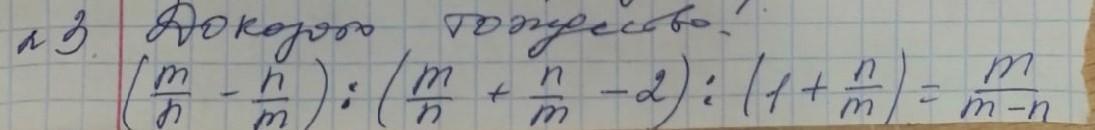 №3. Доказать тождество:
(m/n - n/m) : (m/n + n/m - 2) : (1 + n/m) = m/(m-n)